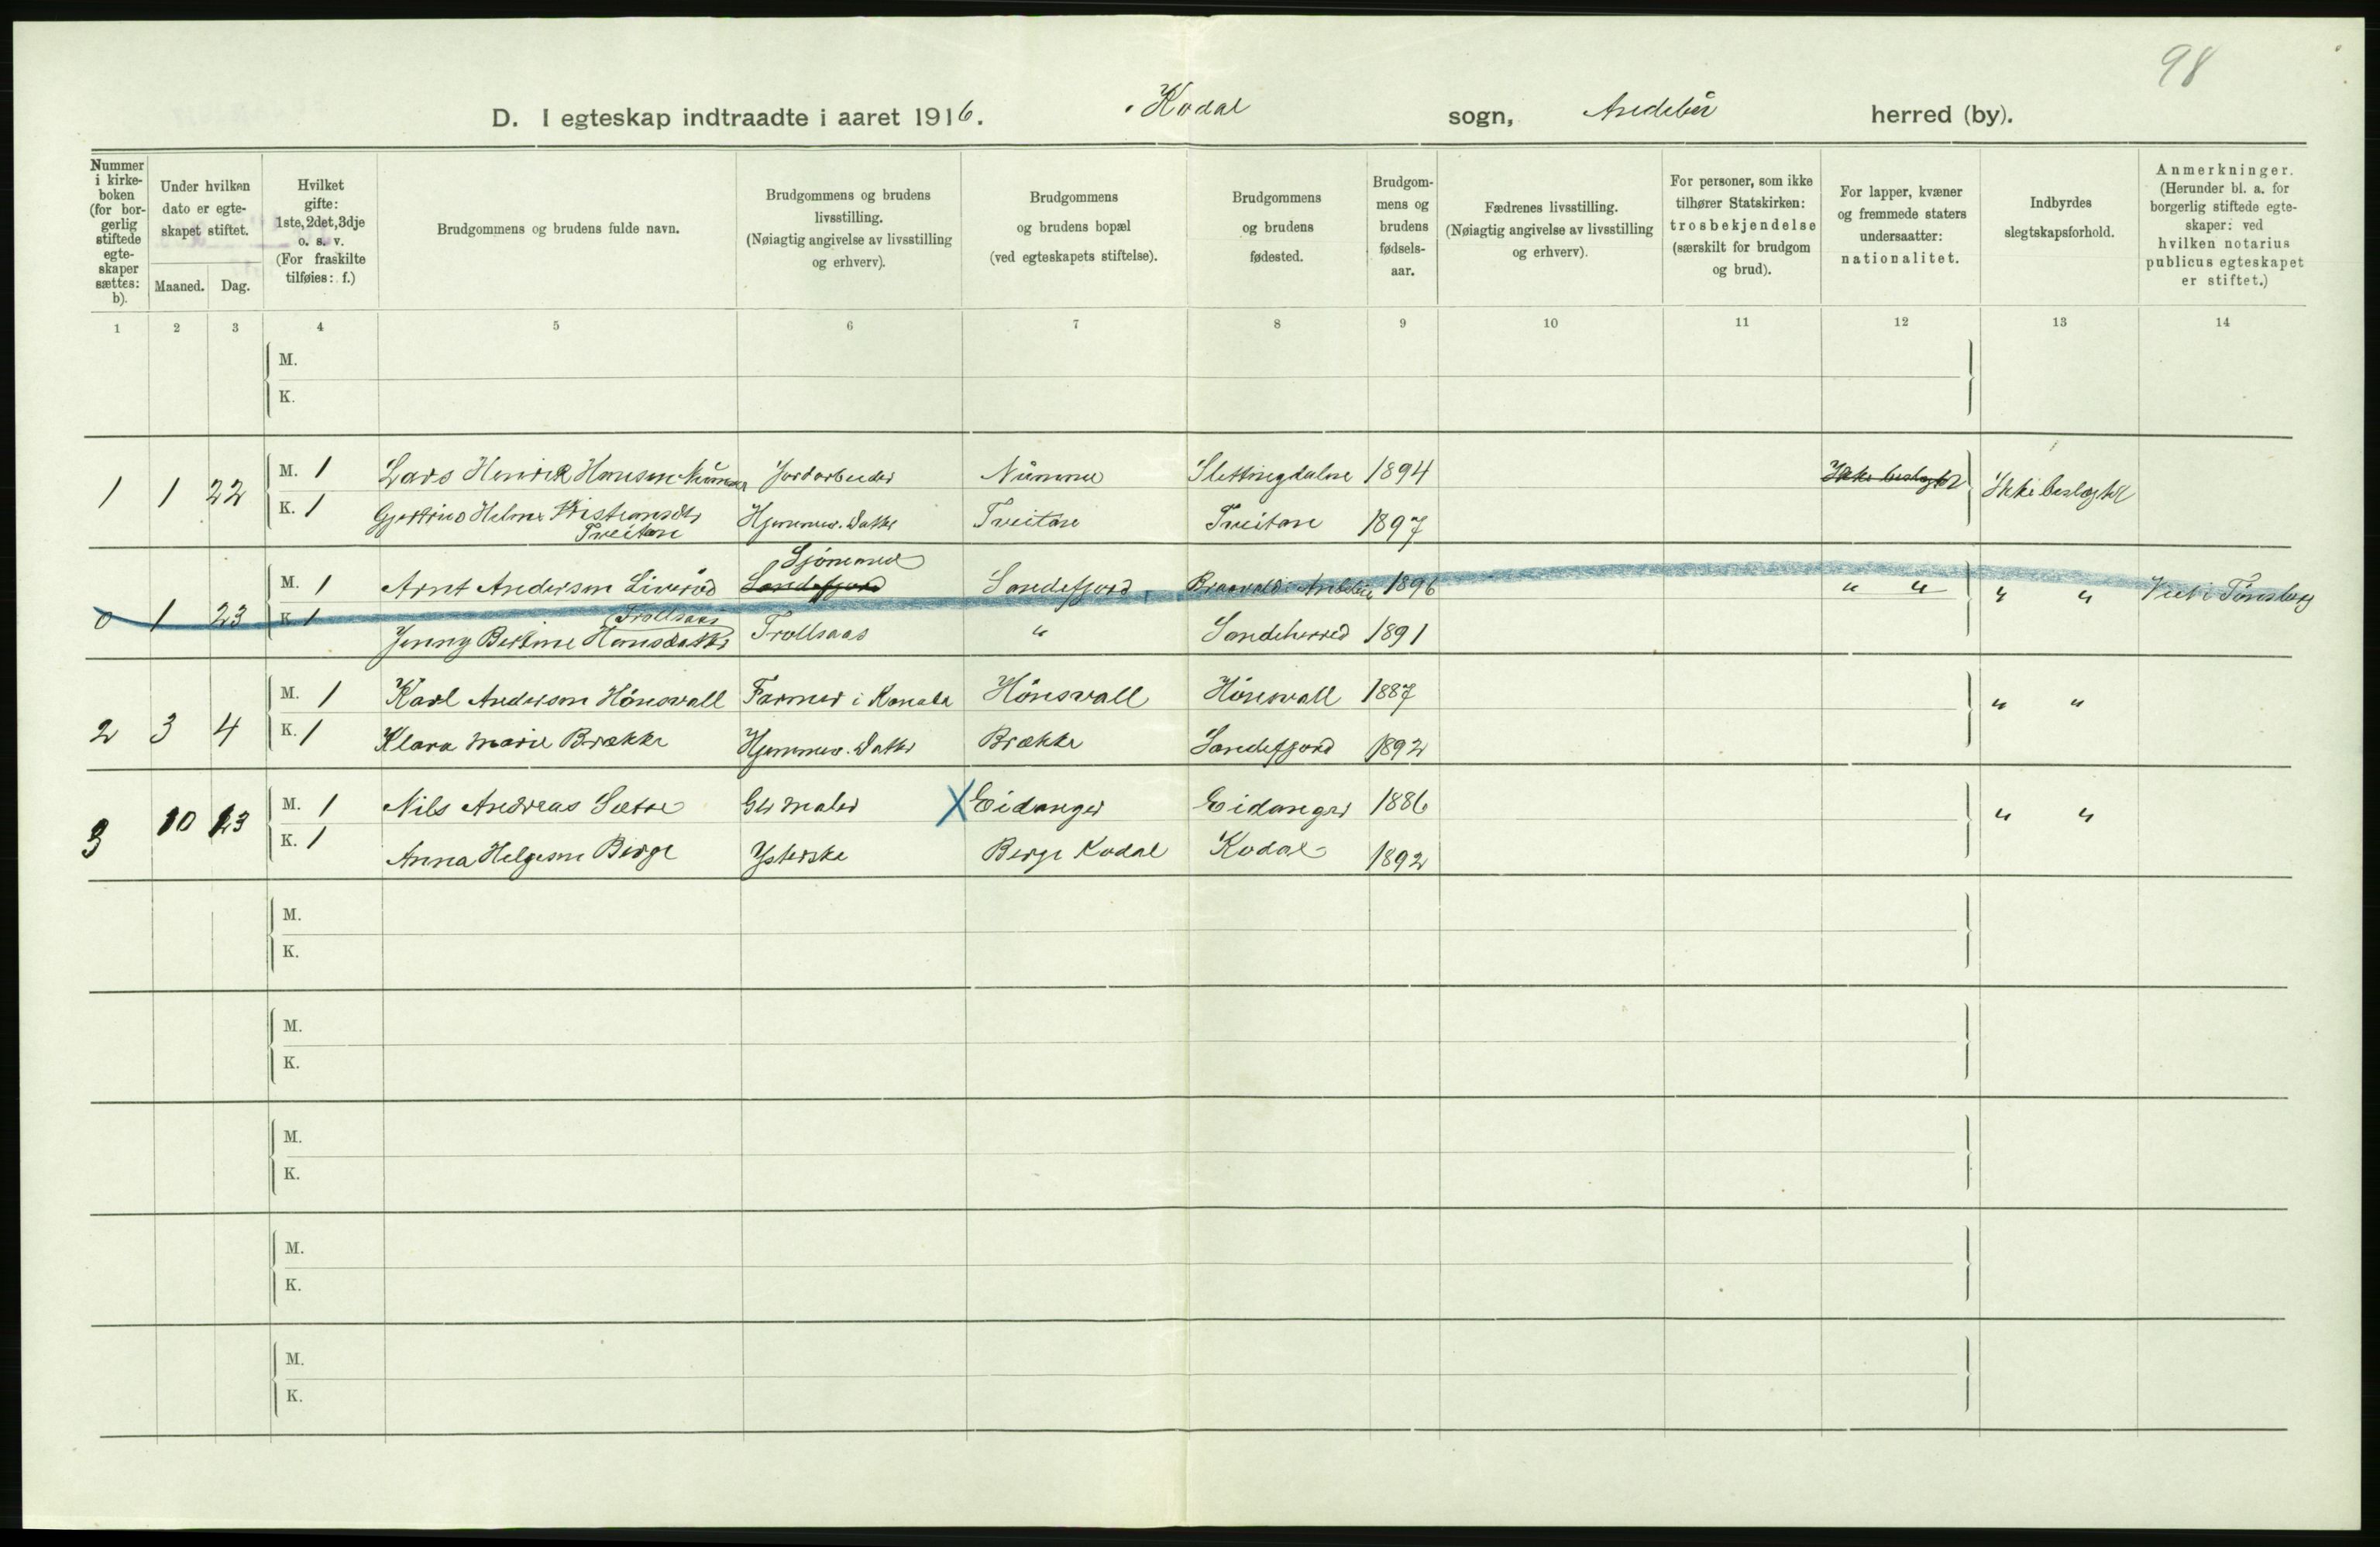 98
D. I egteskap indtraadte i aaret 1916. Kodal sogn, Andebu herred (by).
Nummer i kirkeboken (for borgerlig stiftede egteskaper sættes: b).
Under hvilken dato er egteskapet stiftet.
Maaned. Dag.
Hvilket gifte: 1ste, 2det, 3dje o. s. v. (For fraskilte tilføies: f.)
Brudgommens og brudens fulde navn.
Brudgommens og brudens livsstilling. (Nøiagtig angivelse av livsstilling og erhverv).
Brudgommens og brudens bopæl (ved egteskapets stiftelse).
Brudgommens og brudens fødested.
Brudgommens og brudens fødselsaar.
Fædrenes livsstilling. (Nøiagtig angivelse av livsstilling og erhverv).
For personer, som ikke tilhører Statskirken: trosbekjendelse (særskilt for brudgom og brud).
For lapper, kvæner og fremmede staters undersaatter: nationalitet.
Indbyrdes slegtskapsforhold.
Anmerkninger. (Herunder bl. a. for borgerlig stiftede egteskaper: ved hvilken notarius publicus egteskapet er stiftet.)
1 2 3 4 5 6 7 8 9 10 11 12 13 14
M.
K.
1 1 22
M. 1 Lars Henrik Hansen Nummer Jordarbeider Numme Slettingdalen 1894 Ikke beslægtet Ikke beslægtet
K. 1 Gjertrud Helene Kristiansdtr Hjemmev. Datter Treitan Treitan 1897
Treitan
Sjömand
0 1 23
M. 1 Arnt Andersen Liveröd Sandefjord Sandefjord Andebu 1896 " " " " Viet i Tönsberg
Trollsaas
K. 1 Jenny Bertine Hansdatter Trollsaas " Sandeherred 1891
2 3 4
M. 1 Karl Andersen Hönsvall Farmer i Kanada Hönsvall Hönsvall 1887 " "
K. 1 Klara Marie Brække Hjemmev. Datter Brække Sandefjord 1892
3 10 23
M. 1 Nils Andreas Sætre maler X Eidanger Eidanger 1886 " "
K. 1 Anna Helgesen Berge Ysterske Berge Kodal Kodal 1892
M.
K.
M.
K.
M.
K.
M.
K.
M.
K.